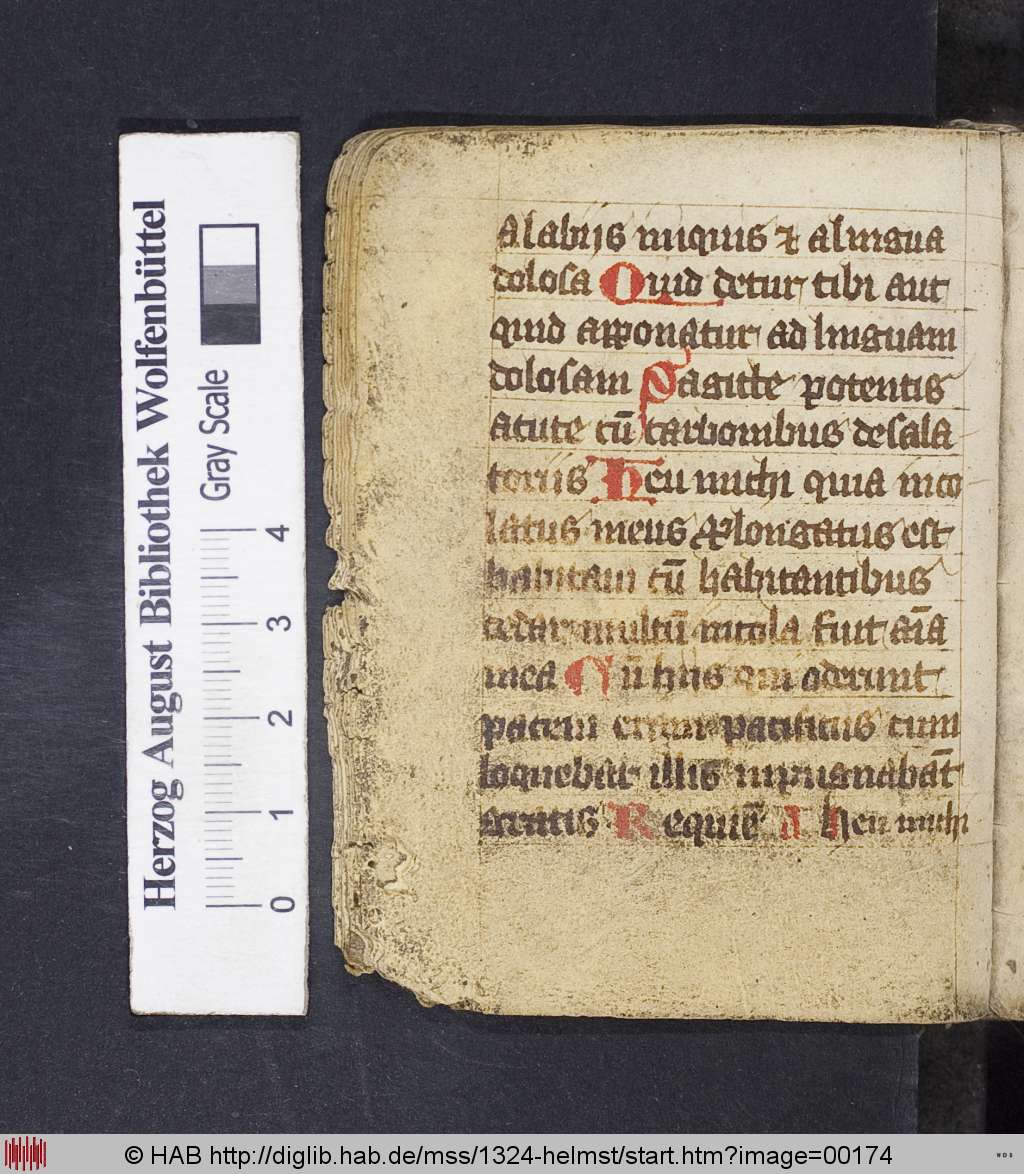 Herzog August Bibliothek Wolfenbüttel
Gray Scale
0 1 2 3 4
A labijs iniquis ⁊ a lingua
dolosa Quid detur tibi aut
quid apponatur ad linguam
dolosam Sagitte potentis
acute cū carbonibus desola
toriis Heu michi quia inco
latus meus ꝓlongatus est
habitaui cū habitantibus
cedar multū incola fuit aīa
mea Cū hiis qui oderunt
pacem eram pacificus cum
loquebar illis inpugnabāt
gratis Requiē A heu michi
© HAB http://diglib.hab.de/mss/1324-helmst/start.htm?image=00174